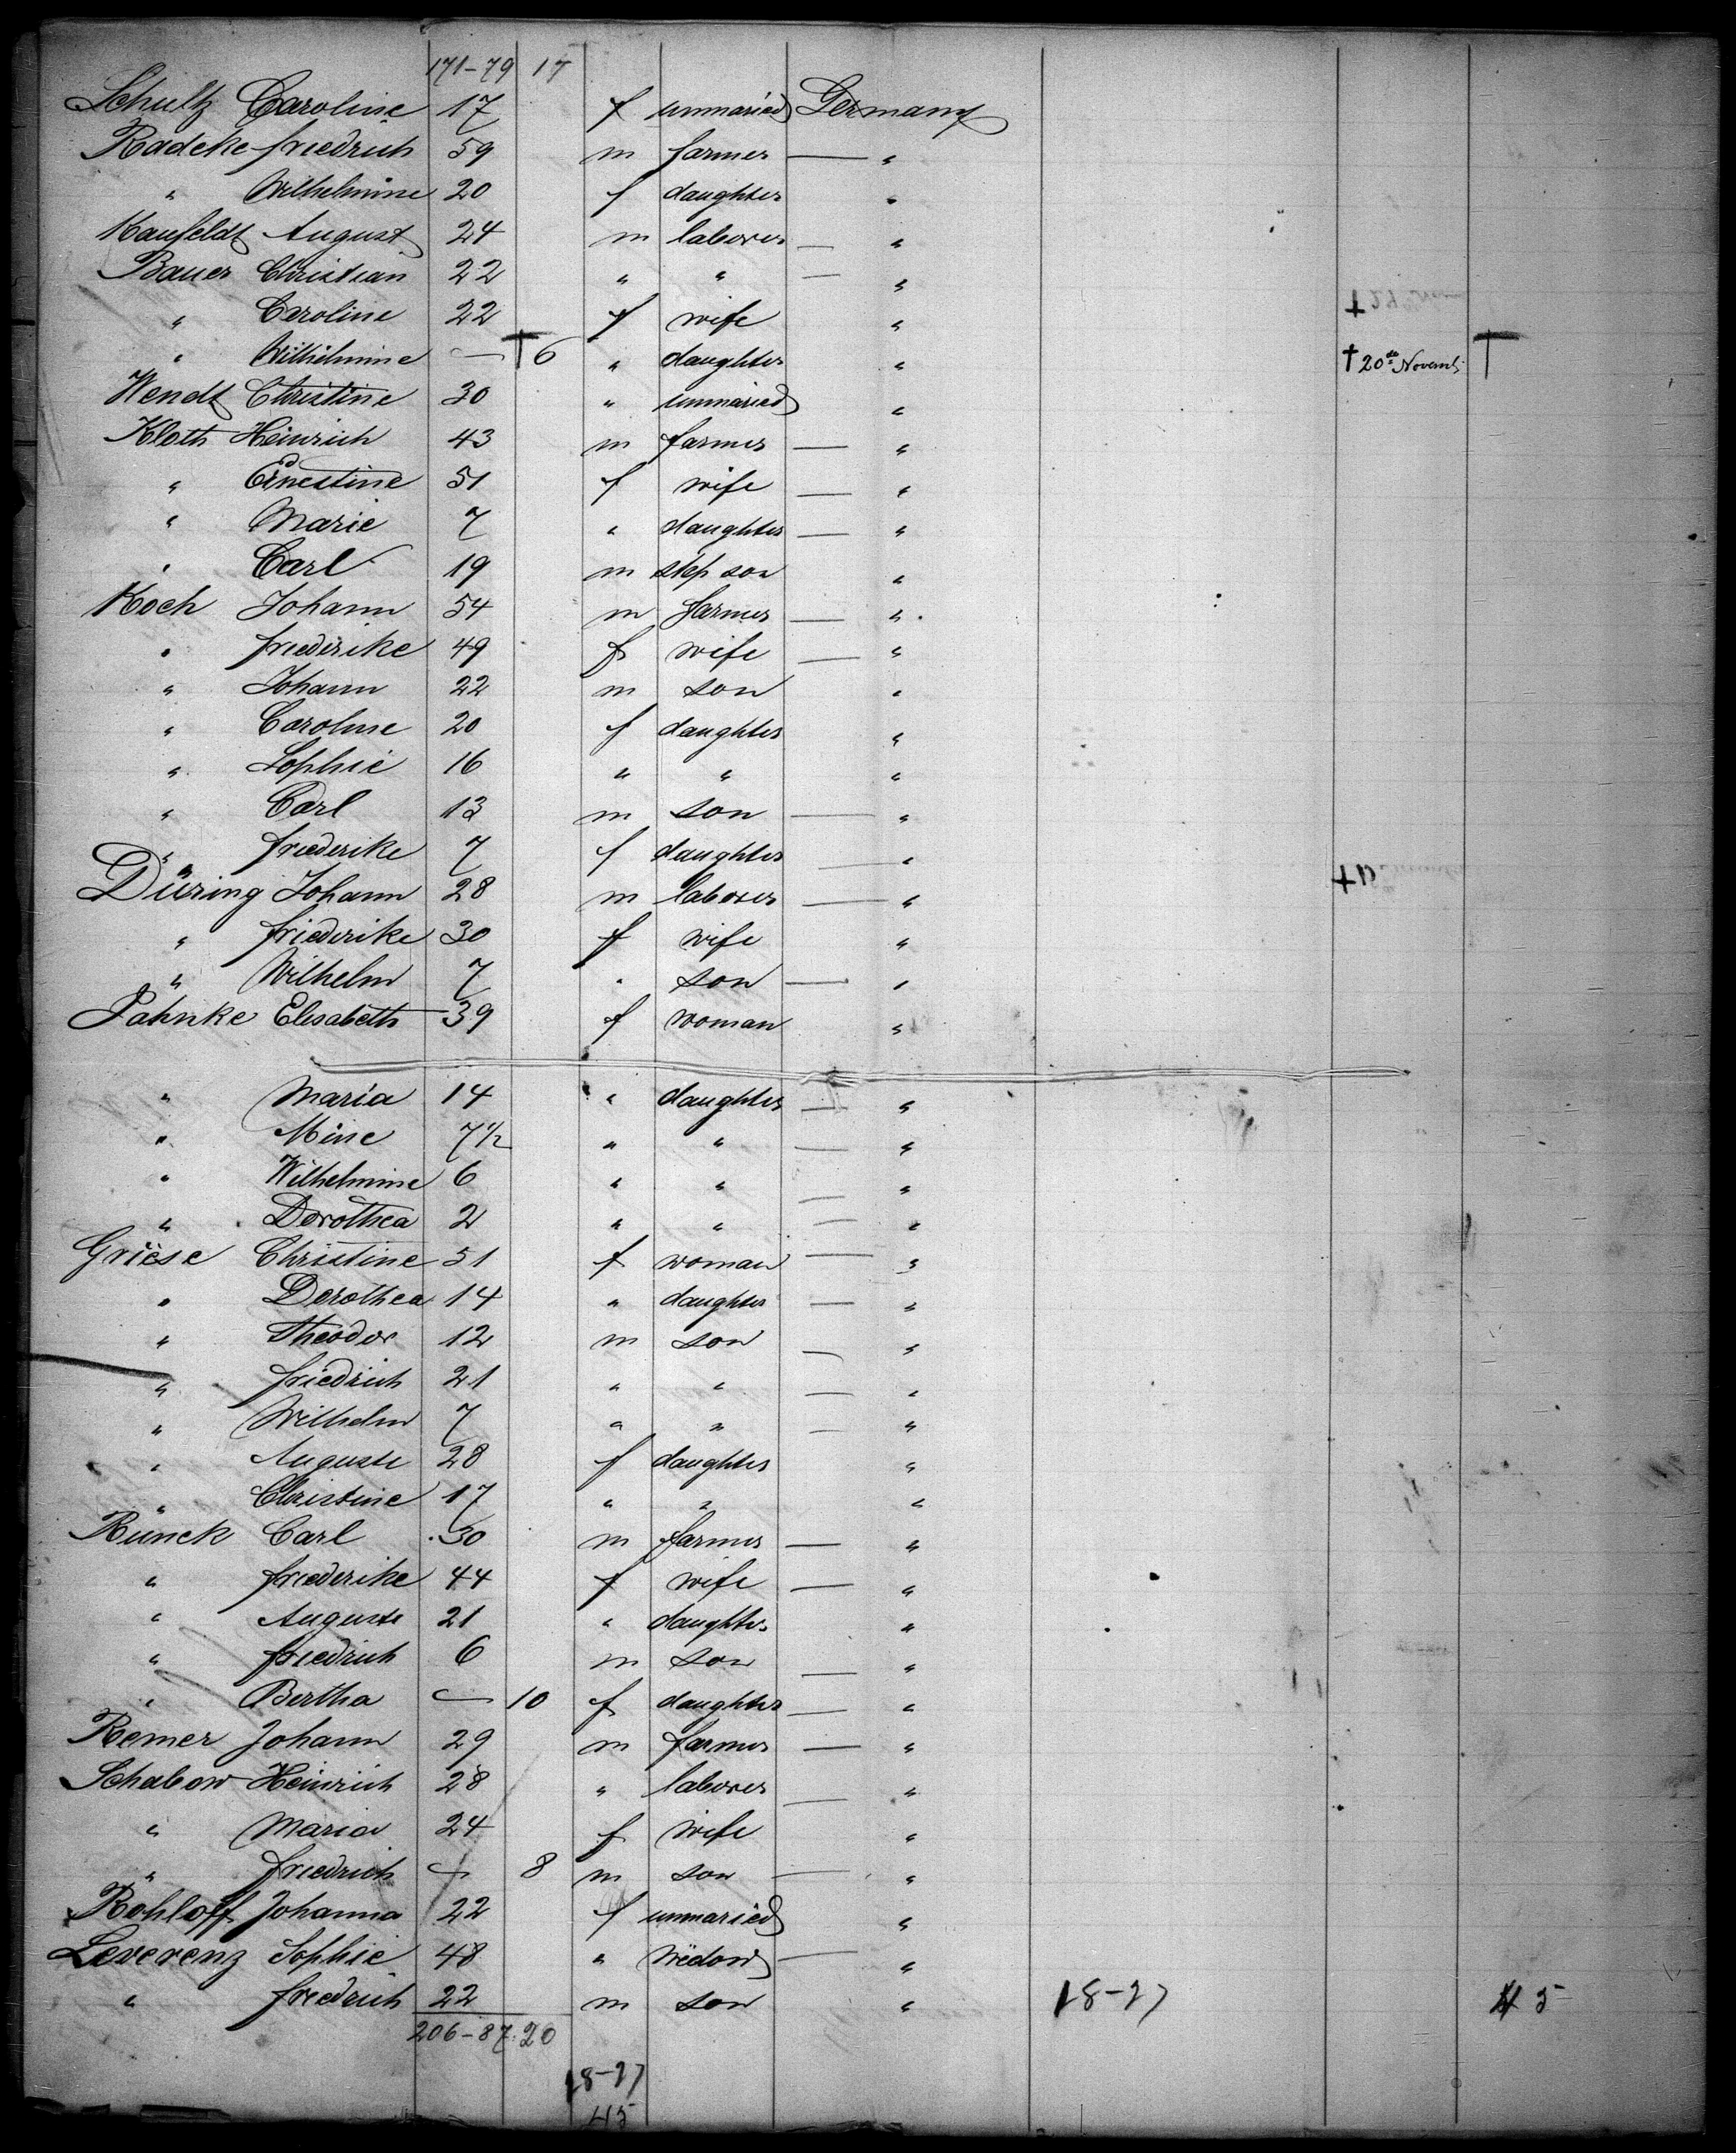 171-79 17
Schultz Caroline 17 f unmaried Germany
Radeke friedrich 59 m farmer — "
" Wilhelmine 20 f daughter "
Kaufeldt August 24 m laborer — "
Bauer Christian 22 " " — "
" Caroline 22 f wife " †
" Wilhelmine — † 6 " daughter " † 20de Novemb. †
Wendt Christine 30 " unmaried "
Kloth Heinrich 43 m farmer — "
" Ernestine 51 f wife — "
" Marie 7 " daughter — "
" Carl 19 m step son "
Koch Johann 54 m farmer — "
" friederike 49 f wife — "
" Johann 22 m son "
" Caroline 20 f daughter "
" Sophie 16 " " "
" Carl 13 m son — "
" friederike 7 f daughter — "
Düring Johann 28 m laborer — " †
" friederike 30 f wife "
" Wilhelm 7 " son — "
Pahnke Elisabeth 39 f woman "
" Maria 14 " daughter — "
" Mine 7½ " " — "
" Wilhelmine 6 " " — "
" Dorothea 2 " " — "
Griese Christine 51 f woman — "
" Dorothea 14 " daughter — "
" Theodor 12 m son — "
" friedrich 21 " " — "
" Wilhelm 7 " " — "
" Auguste 28 f daughter "
" Christine 17 " " "
Rünck Carl 30 m farmer — "
" friederike 44 f wife — "
" Auguste 21 " daughter "
" friedrich 6 m son — "
" Bertha — 10 f daughter — "
Remer Johann 29 m farmer — "
Schabow Heinrich 28 " laborer — "
" Maria 24 f wife "
" friedrich — 8 m son — "
Rohloff Johanna 22 f unmaried "
Leverenz Sophie 48 " widow — "
" friedrich 22 m son " 18-27 45
206-87.20
18-27
45